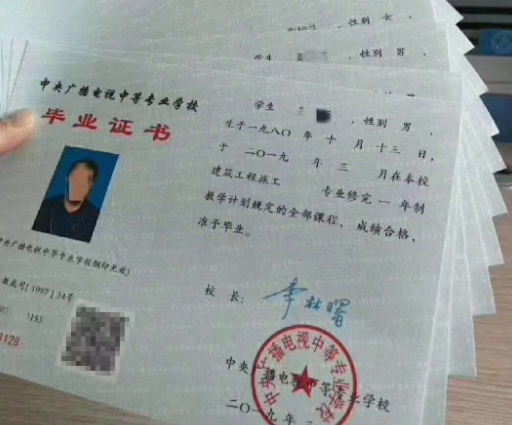 性别 女,
学生
性别 男,
中央广播电视中等专业学校
毕业证书
中央广播电视中等专业学校钢印无效)
[1997]34号
155
1128
学生
性别 男,
生于一九八〇年 十 月 十三 日,
于 二〇一九 年 三 月在本校
建筑工程施工 专业修完 一 年制
教学计划规定的全部课程, 成绩合格,
准予毕业。
校 长:
李林曙
中央广播电视中等专业学校
中央广播电视中等专业学校
二〇一九年